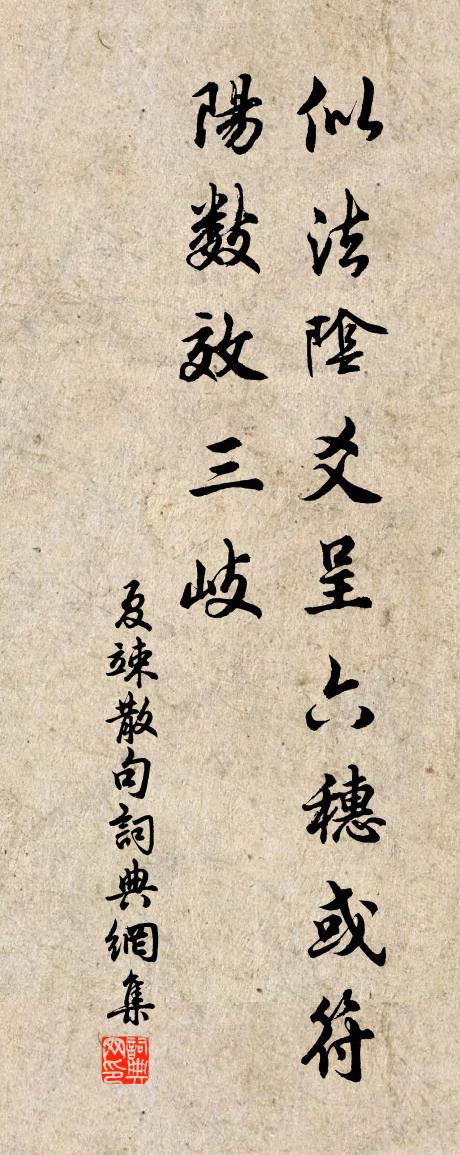 似法陰爻呈六穗或符
陽数效三岐
夏竦散句詞典網集
詞典網印